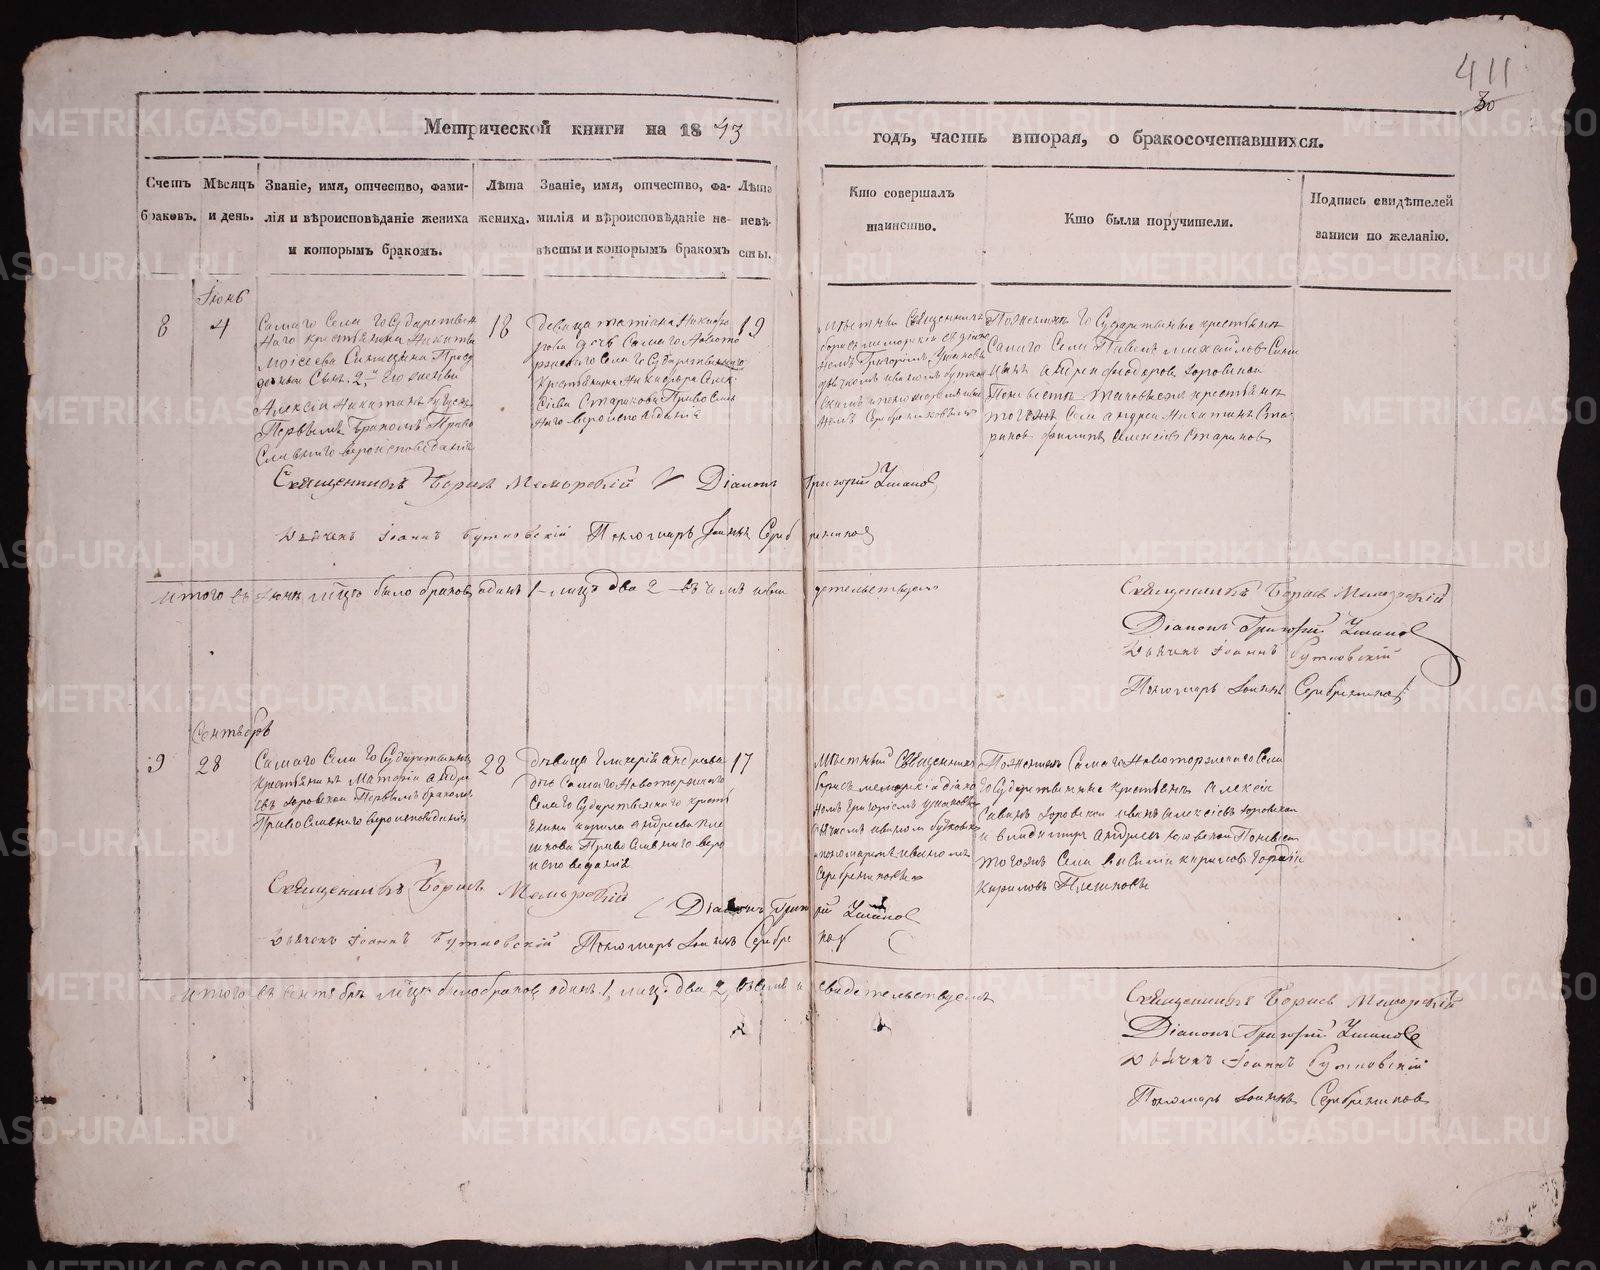 411
30
Метрической книги на 1843
годъ, часть вторая, о бракосочетавшихся.
Счетъ браковъ.
Мѣсяцъ и день.
Званіе, имя, отчество, фами-
лія и вѣроисповѣданіе жениха
и которымъ бракомъ.
Лѣта жениха.
Званіе, имя, отчество, фа-
милія и вѣроисповѣданіе не-
вѣсты и которымъ бракомъ
Лѣта невѣ-
сты.
Кто совершалъ
таинство.
Кто были поручители.
Подпись свидѣтелей
записи по желанію.
Іюнь
8
4
Самаго Села Государствен
наго крестьянина Никиты
Моисеева
Сынъ
Алексій Никитинъ
Первымъ бракомъ Право
Славнаго вероисповеданія
18
Девица татіана Никифо
рова дочь Самаго Новото
ржскаго Села Государственнаго
Крестьянина Никифора Алек
Сіева Старикова Право Слав
наго вероисповеданія
19
Местный Священникъ
Борисъ меморскій съ діако
номъ Григоріемъ Ушаковы
дьячкомъ иваномъ
Серебрениковымъ
По женихе Государственные крестьяне
Самаго Села Павелъ михайловъ
андрей феодоровъ
По невесте крестьяне
тогожъ Села андрей Никитинъ Ста
риковъ филипъ алексіевъ Стариковъ
Священникъ Борисъ Меморскій Діаконъ Григорій Ушаковъ
Дьячекъ Іоаннъ Бутковскій Пономарь Іоаннъ Серебрениковъ
итого въ Іюне мцѣ было браковъ одинъ 1 лицъ два 2 въ чемъ и свидетельствуемъ
Священникъ Борисъ Меморскій
Діаконъ Григорій Ушаковъ
Дьячекъ Іоаннъ Бутковскій
Пономарь Іоаннъ Серебрениковъ
Сентябрь
9
28
Самаго Села Государственны
Крестьянинъ андре
евъ Боровской Первымъ бракомъ
Право Славнаго вероисповеданія
28
Девица андреева
дочь Самаго Новоторжскаго
Села Государственнаго крест
янина кирила андреева Пле
шкова Право Славнаго веро
исповеданія
17
Местный Священникъ
Борисъ меморскій діако
номъ Григоріемъ ушаковы
дьячкомъ иваномъ бутковски
пономаремъ иваномъ
Серебрениковымъ
По женихе Самаго Новоторжскаго Села
Государственные крестьяне алексій
иванъ алексіевъ Боровской
и владимиръ андреевъ По невесте
тогожъ Села василій кириловъ
Кириловъ Плешковы
Священникъ Борисъ Меморскій
Діаконъ Григорій Ушаковъ
Дьячекъ Іоаннъ Бутковскій Пономарь Іоаннъ Серебрениковъ
итого въ сентябрѣ мцѣ было браковъ одинъ 1, лицъ два 2, въ чемъ и свидетельствуемъ
Священникъ Борисъ Меморскій
Діаконъ Григорій Ушаковъ
Дьячекъ Іоаннъ Бутковскій
Пономарь Іоаннъ Серебрениковъ
METRIKI.GASO-URAL.RU